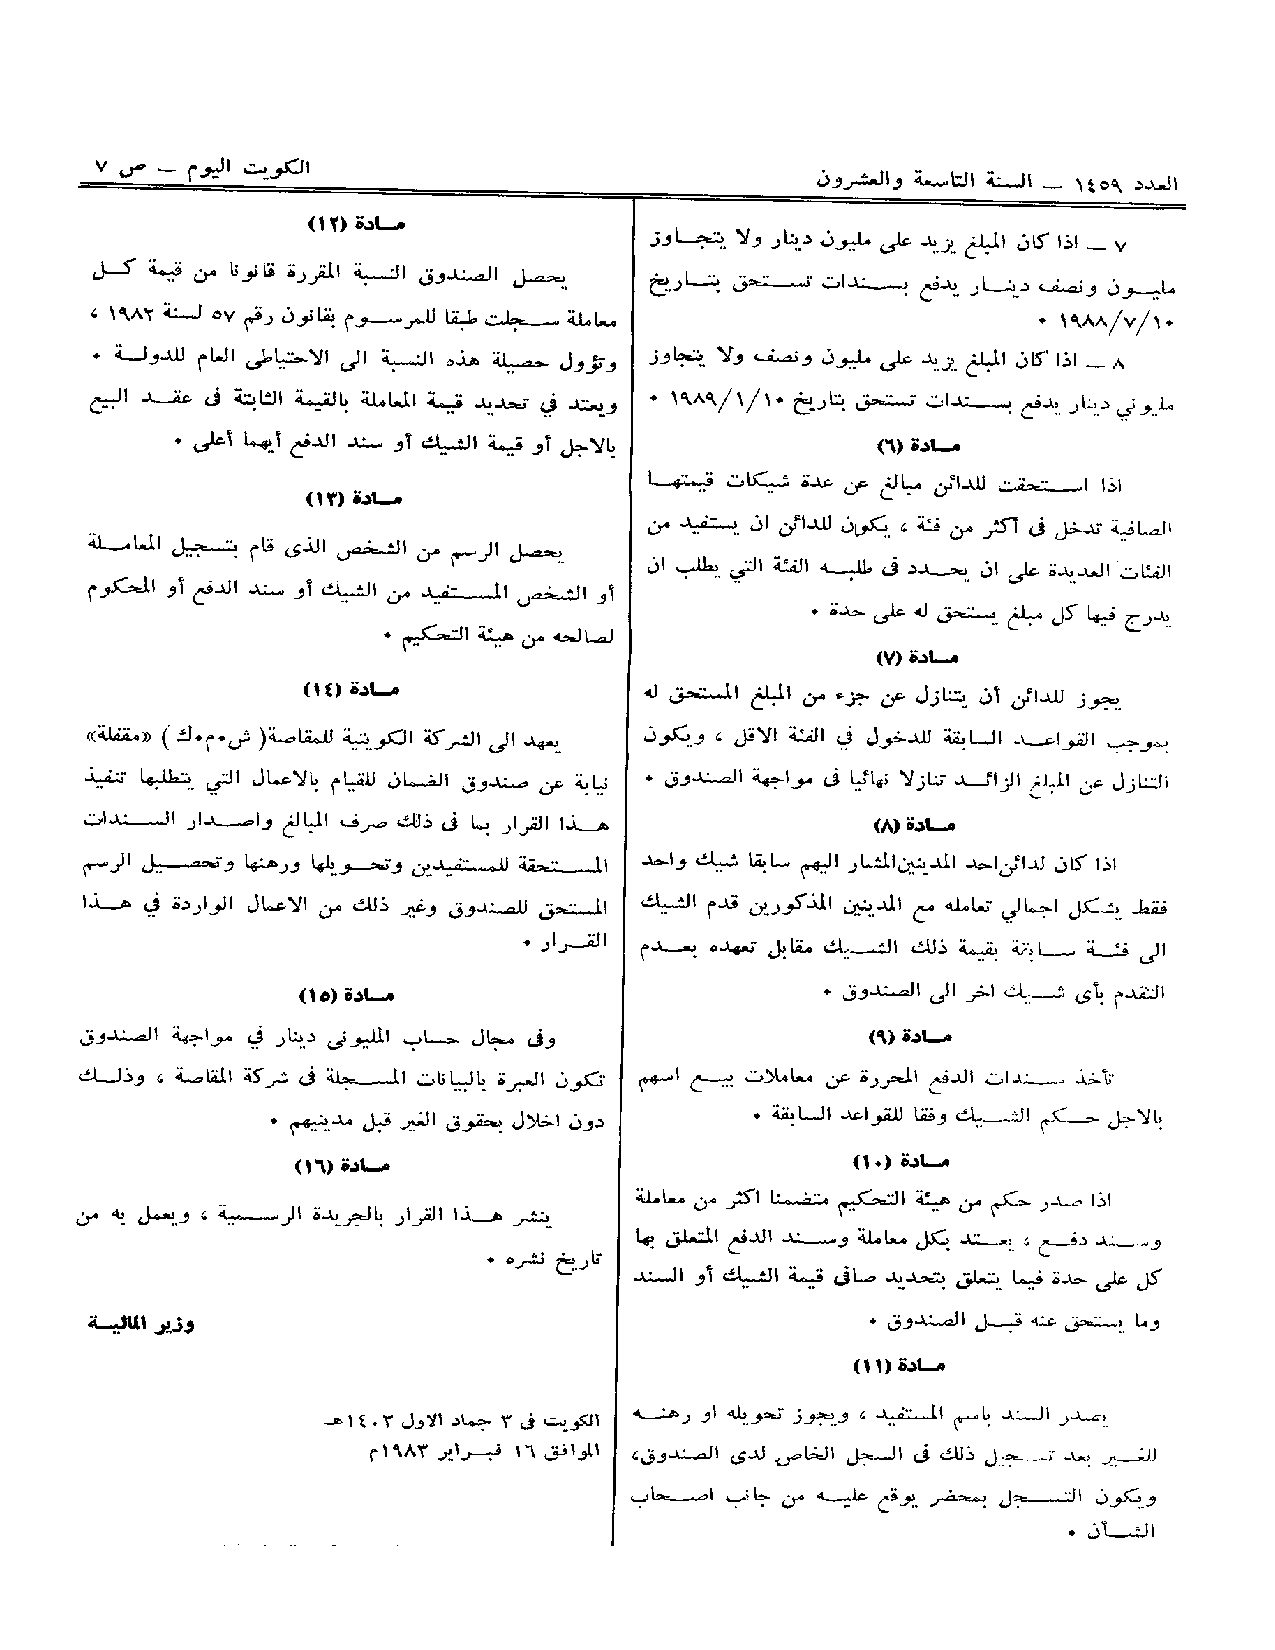 العدد ١٤٥٩ ـ السنة التاسعة والعشرون
الكويت اليوم ـ ص ٧
٧ ـ اذا كان المبلغ يزيد على مليون دينار ولا يتجاوز
مليون ونصف دينار يدفع بسندات تستحق بتاريخ
١٩٨٨/٧/١٠ .
٨ ـ اذا كان المبلغ يزيد على مليون ونصف ولا يتجاوز
مليوني دينار يدفع بسندات تستحق بتاريخ ١٩٨٩/١/١٠ .
مادة (٦)
اذا استحقت للدائن مبالغ عن عدة شيكات قيمتها
الصافية تدخل فى اكثر من فئة ، يكون للدائن ان يستفيد من
الفئات العديدة على ان يحدد فى طلبه الفئة التي يطلب ان
يدرج فيها كل مبلغ يستحق له على حدة .
مادة (٧)
يجوز للدائن أن يتنازل عن جزء من المبلغ المستحق له
بموجب القواعد السابقة للدخول في الفئة الاقل ، ويكون
التنازل عن المبلغ الزائد تنازلا نهائيا فى مواجهة الصندوق .
مادة (٨)
اذا كان لدائن احد المدينين المشار اليهم سابقا شيك واحد
فقط يشكل اجمالي تعامله مع المدينين المذكورين قدم الشيك
الى فئة سابقة بقيمة ذلك الشيك مقابل تعهده بعدم
التقدم بأى شيك اخر الى الصندوق .
مادة (٩)
تأخذ سندات الدفع المحررة عن معاملات بيع اسهم
بالاجل حكم الشيك وفقا للقواعد السابقة .
مادة (١٠)
اذا صدر حكم من هيئة التحكيم متضمنا اكثر من معاملة
وسند دفع ، يعتد بكل معاملة وسند الدفع المتعلق بها
كل على حدة فيما يتعلق بتحديد صافى قيمة الشيك أو السند
وما يستحق عنه قبل الصندوق .
مادة (١١)
يصدر السند باسم المستفيد ، ويجوز تحويله او رهنه
للغير بعد تسجيل ذلك فى السجل الخاص لدى الصندوق،
ويكون التسجل بمحضر يوقع عليه من جانب اصحاب
الشأن .
مادة (١٢)
يحصل الصندوق النسبة المقررة قانونا من قيمة كل
معاملة سجلت طبقا للمرسوم بقانون رقم ٥٧ لسنة ١٩٨٢ ،
وتؤول حصيلة هذه النسبة الى الاحتياطى العام للدولة .
ويعتد في تحديد قيمة المعاملة بالقيمة الثابتة فى عقد البيع
بالاجل أو قيمة الشيك أو سند الدفع أيهما أعلى .
مادة (١٣)
يحصل الرسم من الشخص الذى قام بتسجيل المعاملة
أو الشخص المستفيد من الشيك أو سند الدفع أو المحكوم
لصالحه من هيئة التحكيم .
مادة (١٤)
يعهد الى الشركة الكويتية للمقاصة( ش.م.ك ) «مقفلة»
نيابة عن صندوق الضمان للقيام بالاعمال التي يتطلبها تنفيذ
هذا القرار بما فى ذلك صرف المبالغ واصدار السندات
المستحقة للمستفيدين وتحويلها ورهنها وتحصيل الرسم
المستحق للصندوق وغير ذلك من الاعمال الواردة في هذا
القرار .
مادة (١٥)
وفى مجال حساب المليونى دينار في مواجهة الصندوق
تكون العبرة بالبيانات المسجلة فى شركة المقاصة ، وذلك
دون اخلال بحقوق الغير قبل مدينيهم .
مادة (١٦)
ينشر هذا القرار بالجريدة الرسمية ، ويعمل به من
تاريخ نشره .
وزير المالية
الكويت فى ٣ جماد الاول ١٤٠٣هـ
الموافق ١٦ فبراير ١٩٨٣م